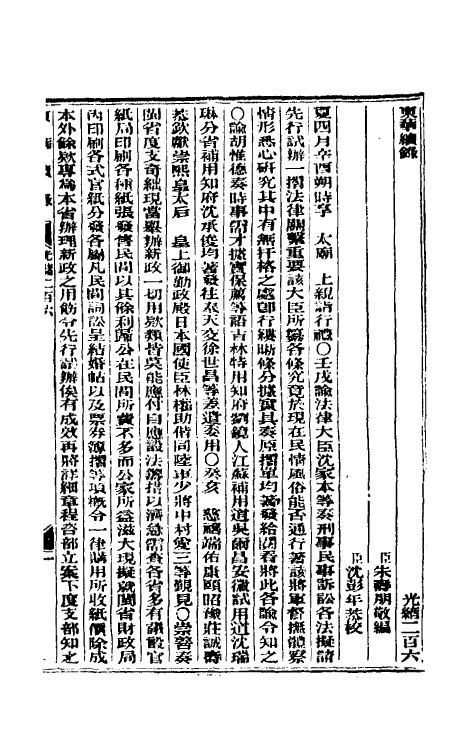 東華續錄
光緒二百六
臣朱壽朋敬編
臣沈彭年恭校
夏四月辛酉朔時享　太廟　上親詣行禮〇壬戌諭法律大臣沈家本等奏刑事民事訴訟各法擬請
先行試辦一摺法律關繫重要該大臣所纂各條究竟於現在民情風俗能否通行著該將軍督撫體察
情形悉心研究其中有無扞格之處卽行縷晰條分據實具奏原摺單均著發給閱看將此各諭令知之
〇諭胡惟德奏時事需才據實保薦等語吉林特用知府劉鏡人江蘇補用道吳
安徽試用道沈瑞
琳分省補用知府沈承俊均著發往奉天交徐世昌等差遣委用〇癸亥　慈禧端佑康頤昭豫莊誠壽
恭欽獻崇熙皇太后　皇上御勤政殿日本國使臣林權助偕同陸軍少將中村愛三等覲見〇崇善奏
閩省度支奇絀現當舉辦新政一切用款類皆莫能應付自應設法籌措以濟急需查各省多有
官
紙局印刷各種紙張發售民間以其餘利歸公在民間所費不多而公家所益滋大現擬就閩省財政局
內印刷各式官紙分發各屬凡民間詞訟呈結婚帖以及票券簿摺等項概令一律購用所收紙價除成
本外餘款專爲本省辦理新政之用飭令先行試辦俟有成效再將詳細章程咨部立案下度支部知之
光緒二百六